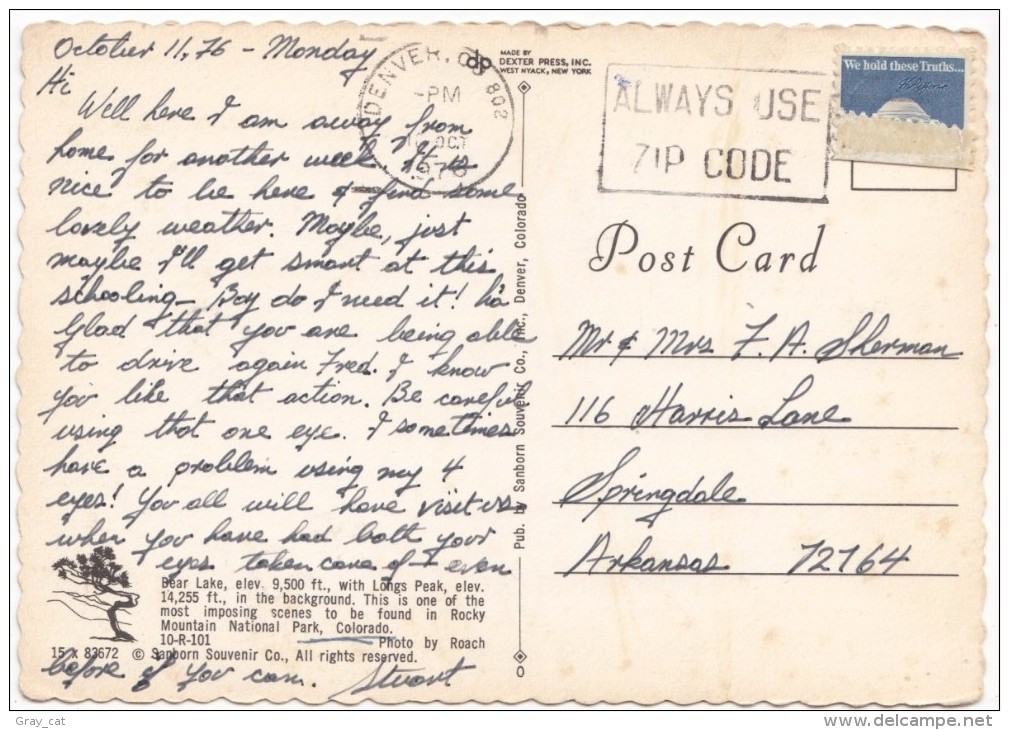 October 11, 76 - Monday
Hi
Well here I am away from
home for another week. It is
nice to be here & find some
lovely weather. Maybe, just
maybe I'll get smart at this
schooling - Boy do I need it! ha
Glad that you are being able
to drive again Fred. I know
you like that action. Be careful
using that one eye. I sometimes
have a problem using my 4
eyes! You all will have visit us
when you have had both your
eyes taken care of - even
before if you can. Stuart
Bear Lake, elev. 9,500 ft., with Longs Peak, elev.
14,255 ft., in the background. This is one of the
most imposing scenes to be found in Rocky
Mountain National Park, Colorado.
10-R-101 Photo by Roach
15 x 83672 © Sanborn Souvenir Co., All rights reserved.
Pub. by Sanborn Souvenir Co., Inc., Denver, Colorado
dp
MADE BY
DEXTER PRESS, INC.
WEST NYACK, NEW YORK
DENVER, CO 802
-PM
OCT
1976
ALWAYS USE
ZIP CODE
We hold these Truths...
Post Card
Mr & Mrs F. A. Sherman
116 Harris Lane
Springdale
Arkansas 72764
Gray_cat
delcampe.net